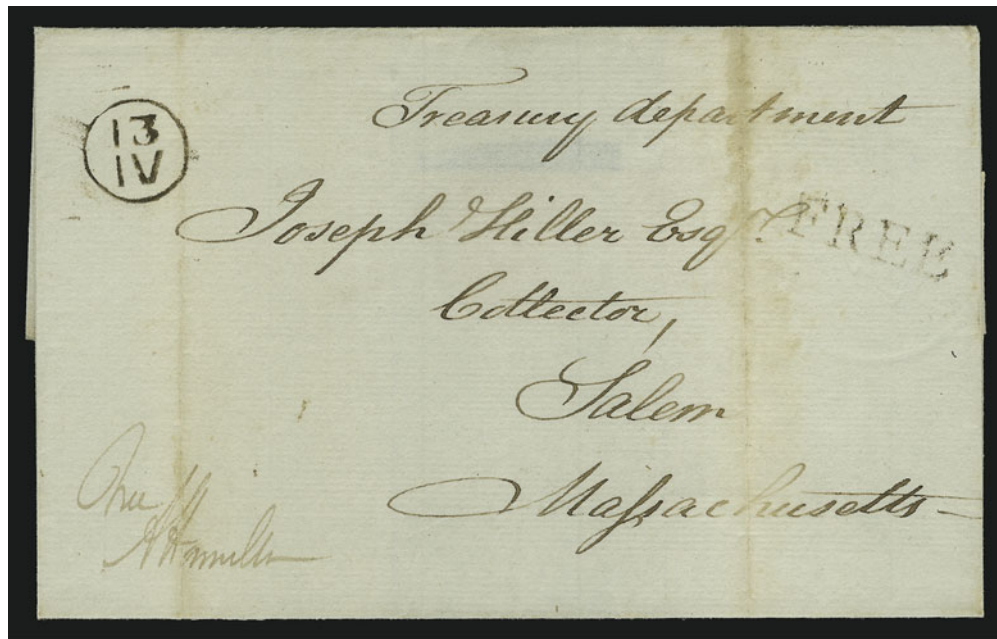 13
IV
Treasury department
FREE
Joseph Hiller Esqr.
Collector,
Salem
Massachusetts
Free
A Hamilton